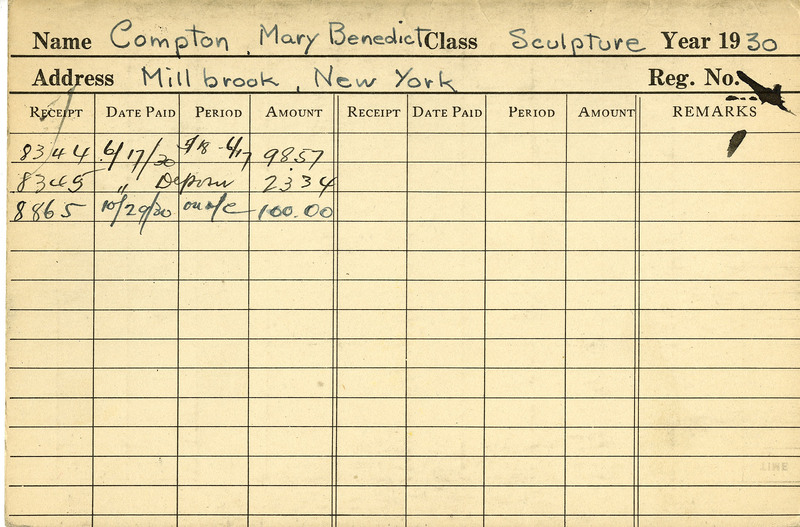 Name Compton, Mary Benedict Class Sculpture Year 1930
Address Millbrook, New York Reg. No.
RECEIPT DATE PAID PERIOD AMOUNT RECEIPT DATE PAID PERIOD AMOUNT REMARKS
8344 6/17/30 5/18-6/17 98.57
8345 " Deposit 23.34
8865 10/29/30 on a/c 100.00